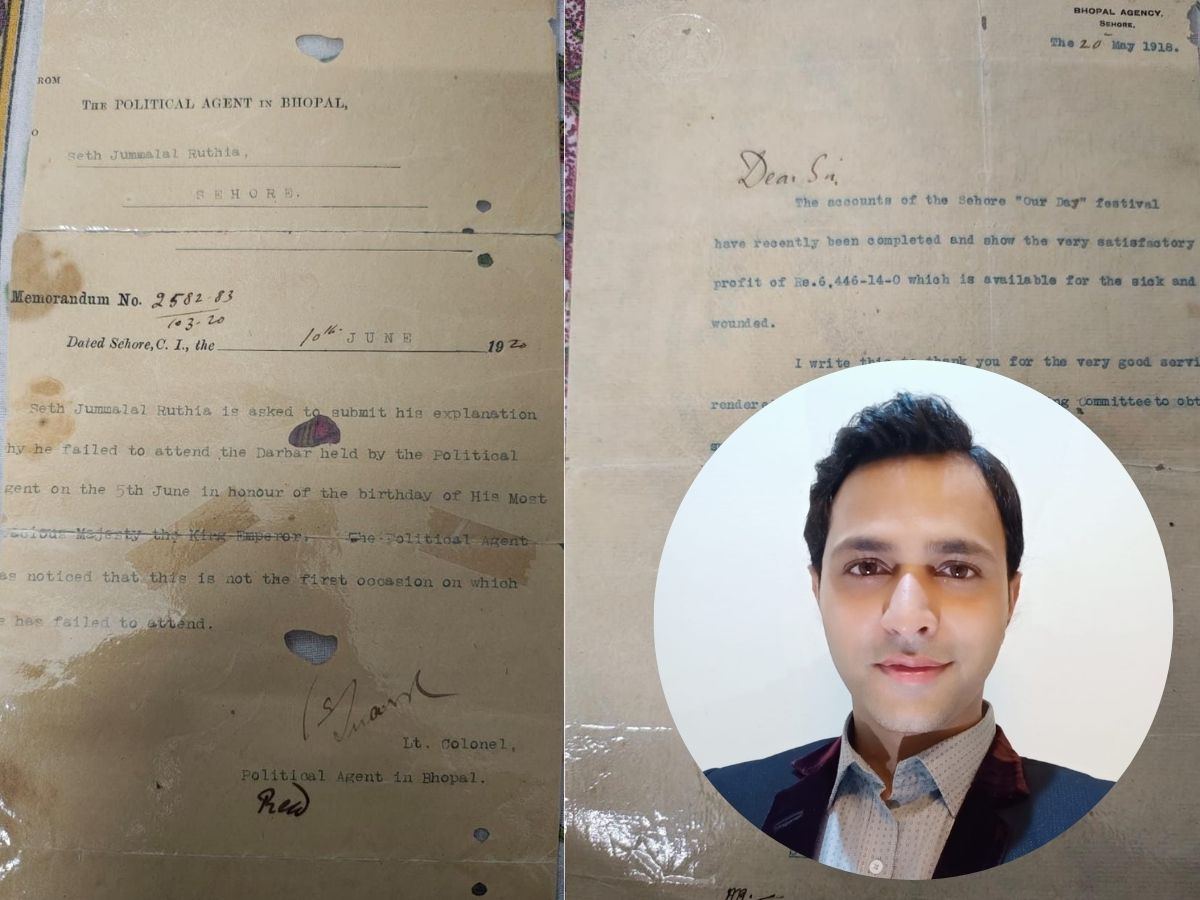 ROM
THE POLITICAL AGENT IN BHOPAL,
O
Seth Jummalal Ruthia,
SEHORE.
Memorandum No. 2582-83
103-20
Dated Sehore, C. I., the 10th JUNE 1920
Seth Jummalal Ruthia is asked to submit his explanation
hy he failed to attend the Darbar held by the Political
gent on the 5th June in honour of the birthday of His Most
racious Majesty the King Emperor. The Political Agent
as noticed that this is not the first occasion on which
e has failed to attend.
Lt. Colonel,
Political Agent in Bhopal.
BHOPAL AGENCY,
SEHORE.
The 20 May 1918.
Dear Sir,
The accounts of the Sehore "Our Day" festival
have recently been completed and show the very satisfactory
profit of Rs.6,446-14-0 which is available for the sick and
wounded.
I write this to thank you for the very good servi
render ng committee to obt